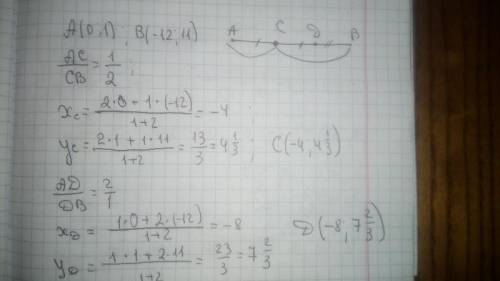 A(0;1) ; B(-12;11)
A C D B
AC/CB = 1/2 ;
x_C = (2·0 + 1·(-12))/(1+2) = -4
y_C = (2·1 + 1·11)/(1+2) = 13/3 = 4 1/3 ; C(-4; 4 1/3)
AD/DB = 2/1
x_D = (1·0 + 2·(-12))/(1+2) = -8 D(-8; 7 2/3)
y_D = (1·1 + 2·11)/(1+2) = 23/3 = 7 2/3